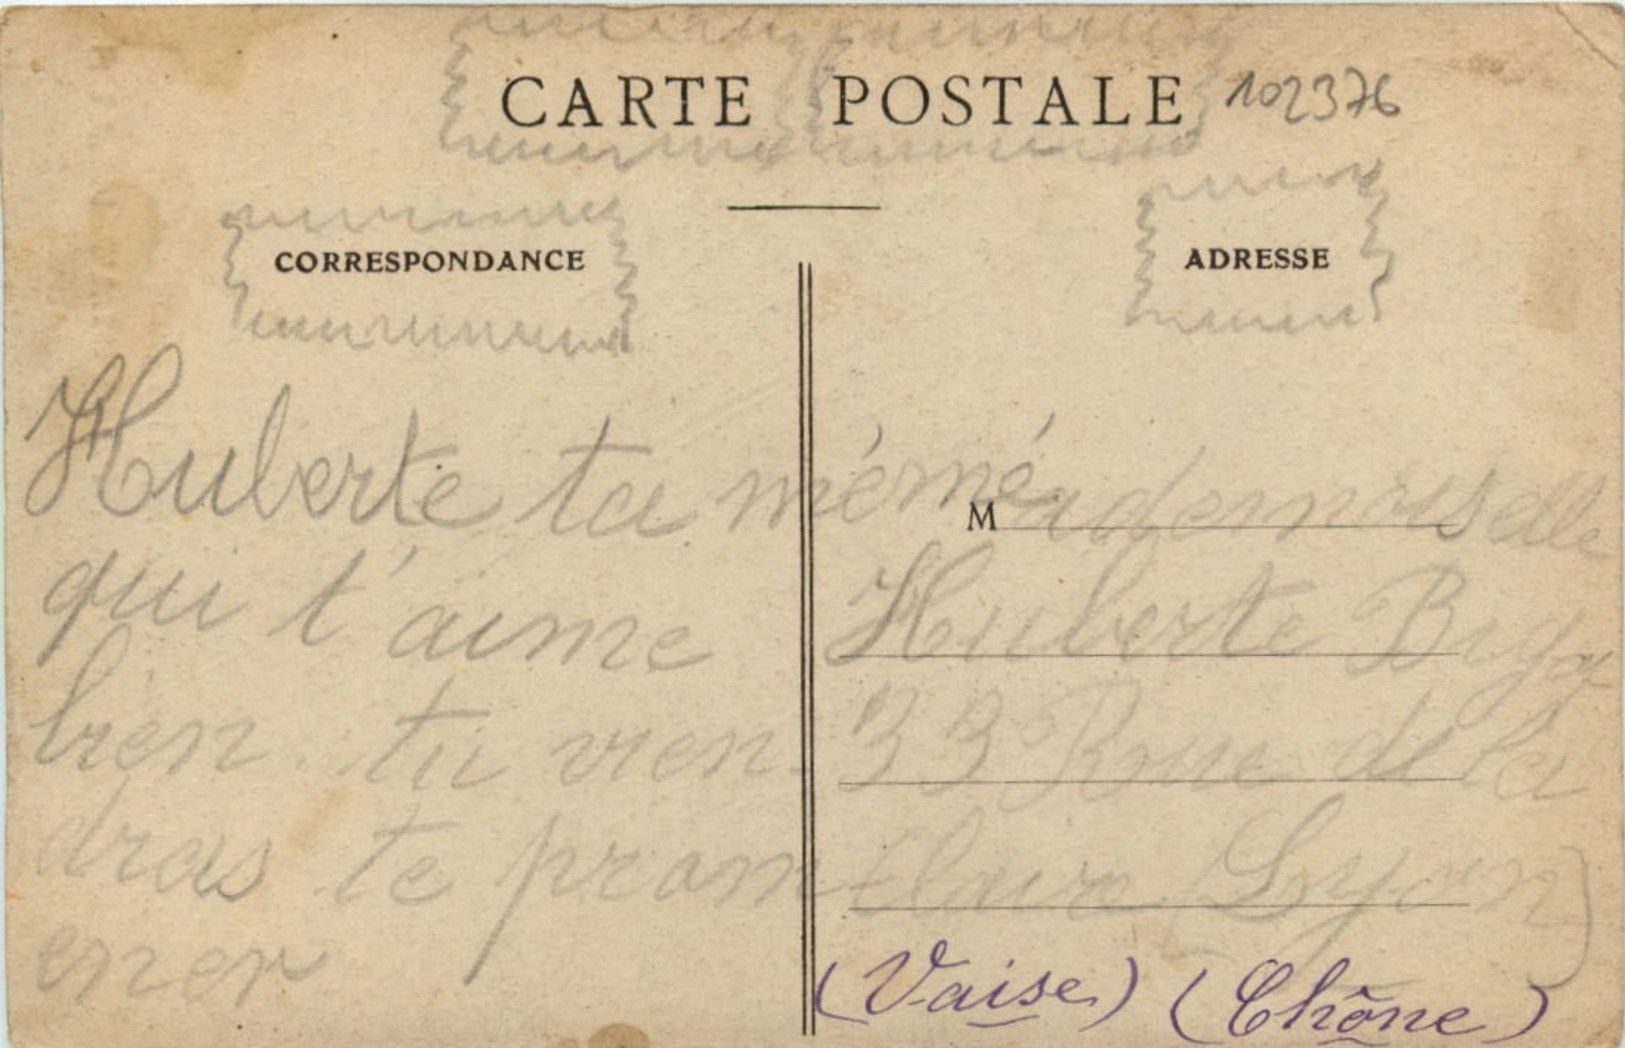 CARTE POSTALE 102376
CORRESPONDANCE
Huberte ta mémé
qui t'aime
bien tu vien-
dras te prom-
ener
ADRESSE
Mademoiselle
Huberte
33 Rue de la
Claire (Lyon)
(Vaise) (Rhône)